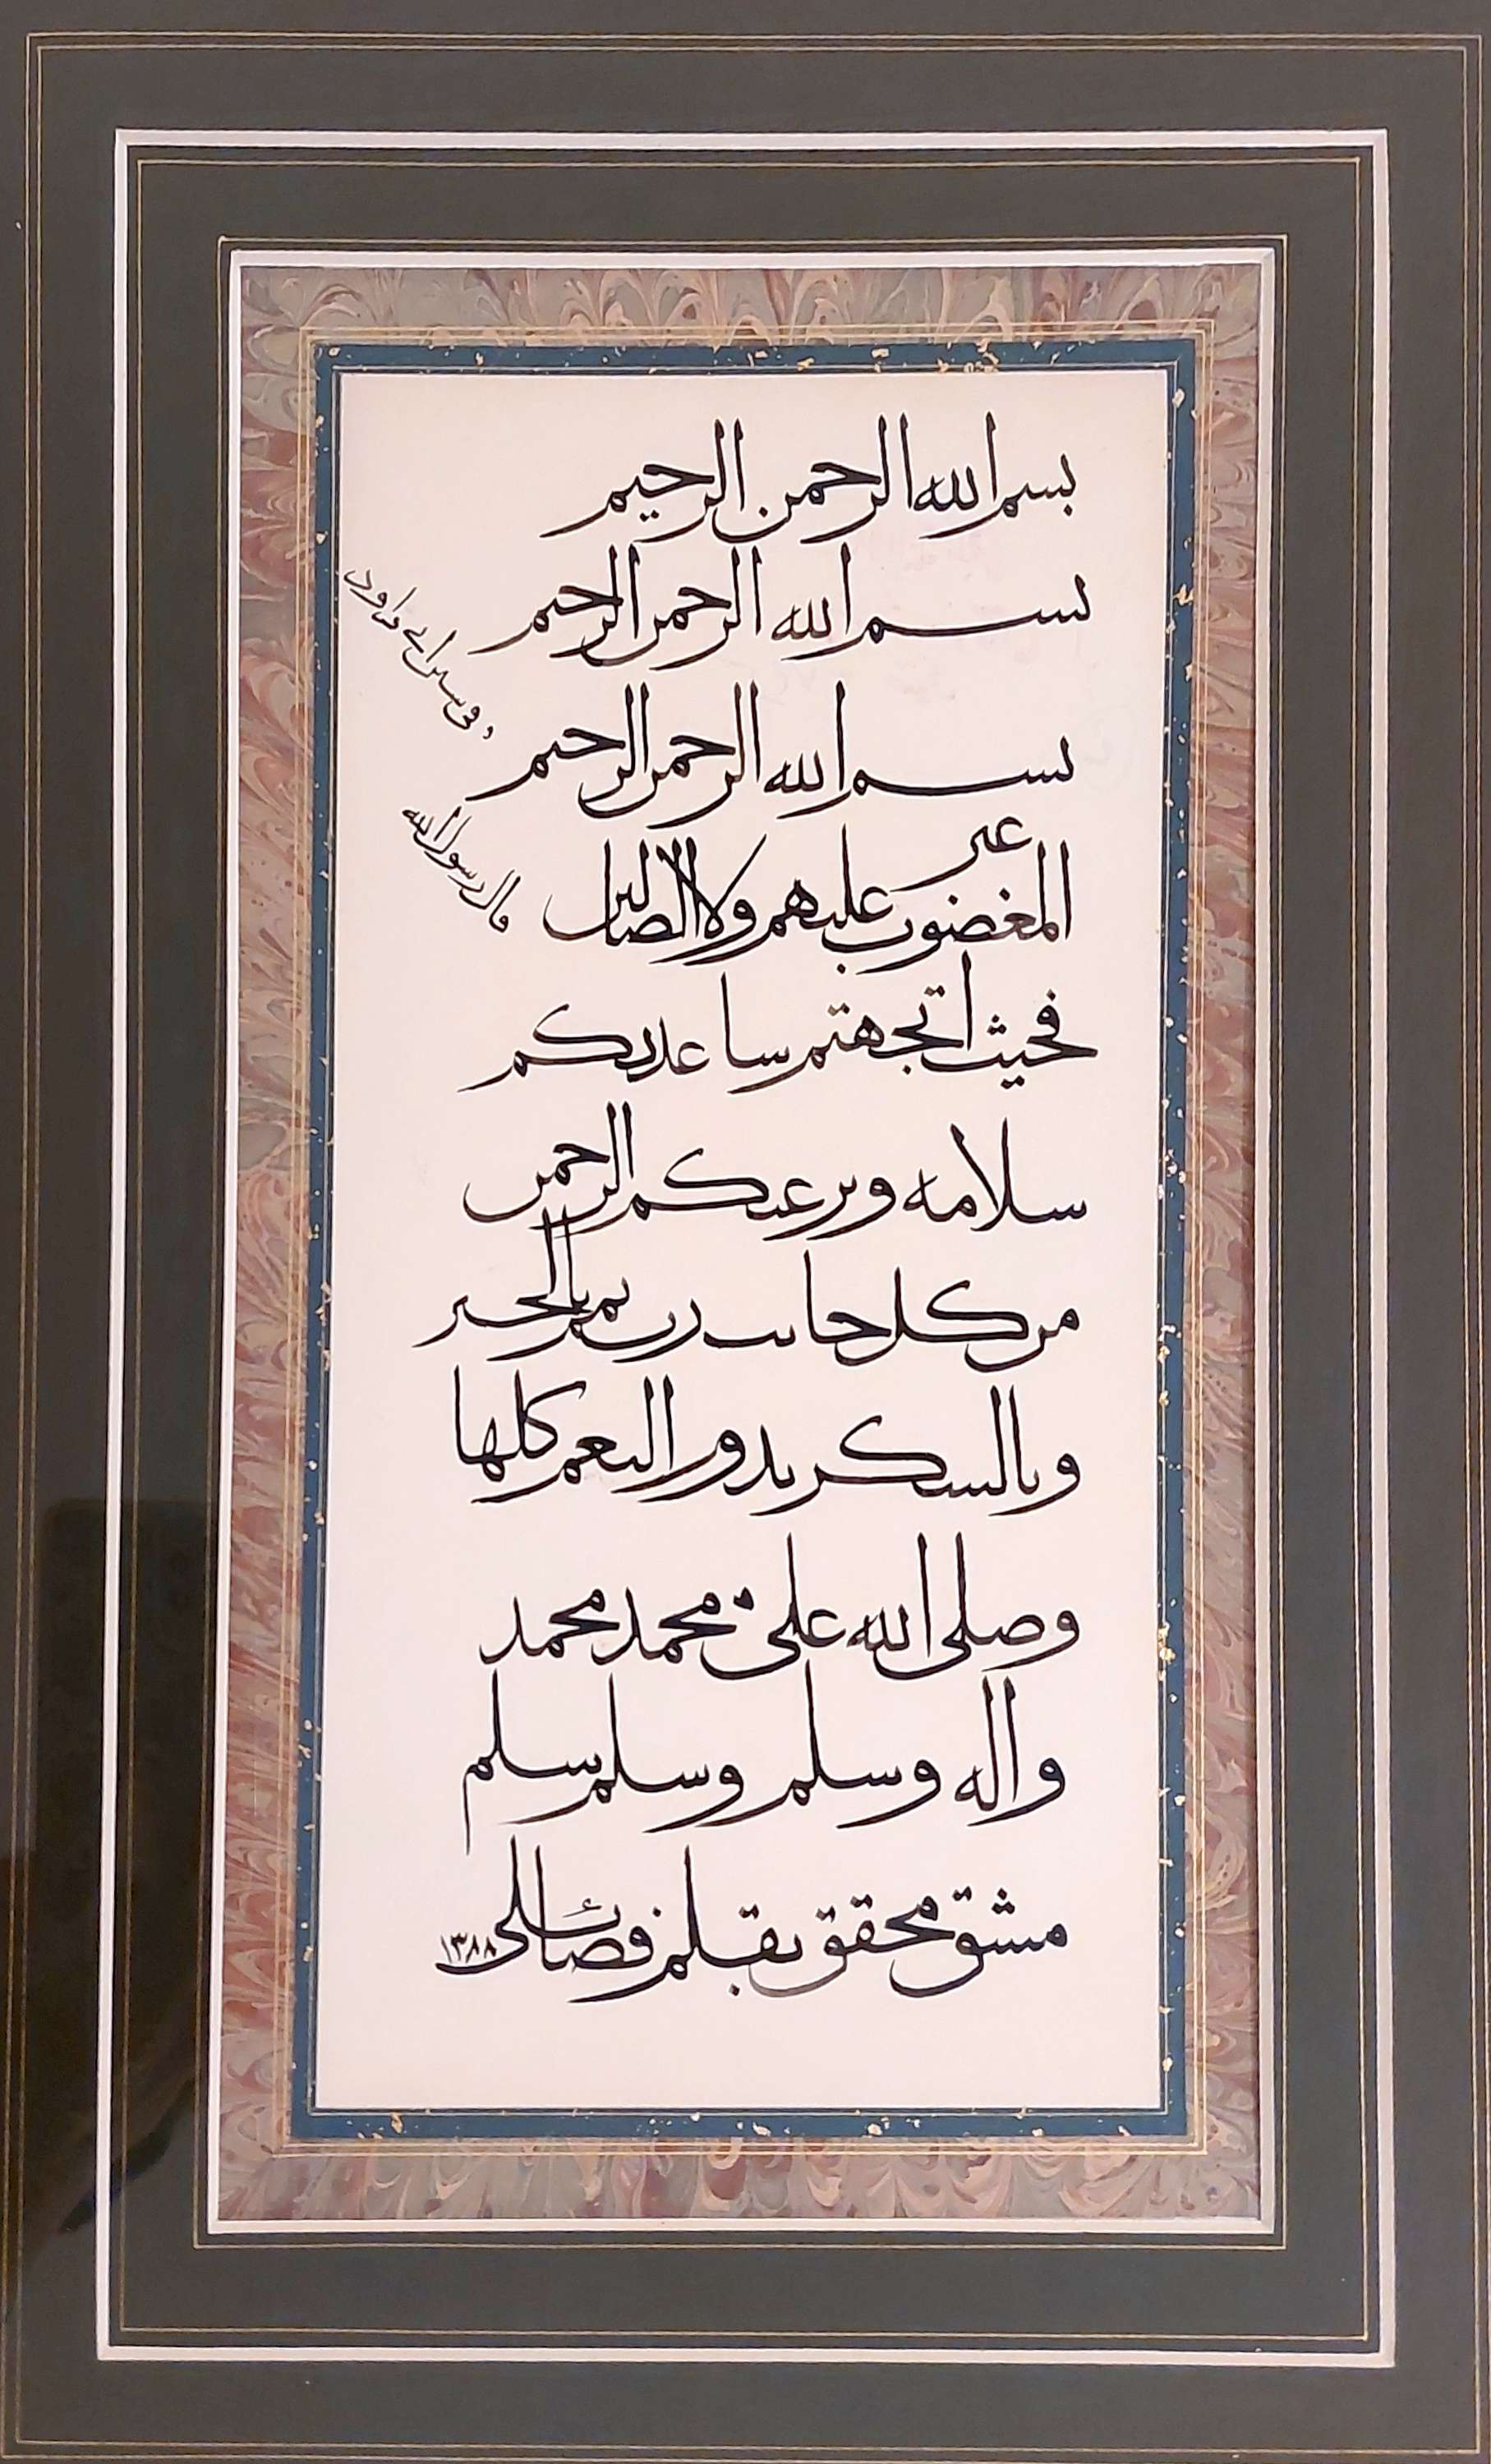 بسم الله الرحمن الرحيم
بسم الله الرحمن الرحيم
بسم الله الرحمن الرحيم
غير
المغضوب عليهم ولا الضالين
فحيث اتجهتم ساعدتكم
سلامه ويرعكم الرحمن
من كل جانب رب تمم بالخير
وبالشكر يدور النعم كلها
وصلى الله على محمد محمد
واله وسلم وسلم سلم
مشق محقق بقلم فضائلی ۱۳۸۸
وفي سنن ابي داود
قال رسول الله